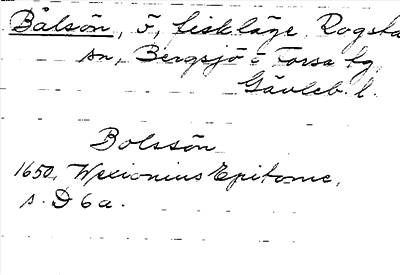 Bålsön, ö, fiskläge Rogsta
sn, Bergsjö o Forsa tg
Gävleb. l.
Bolssön
1650, Wexionius Epitome,
s. D6a.